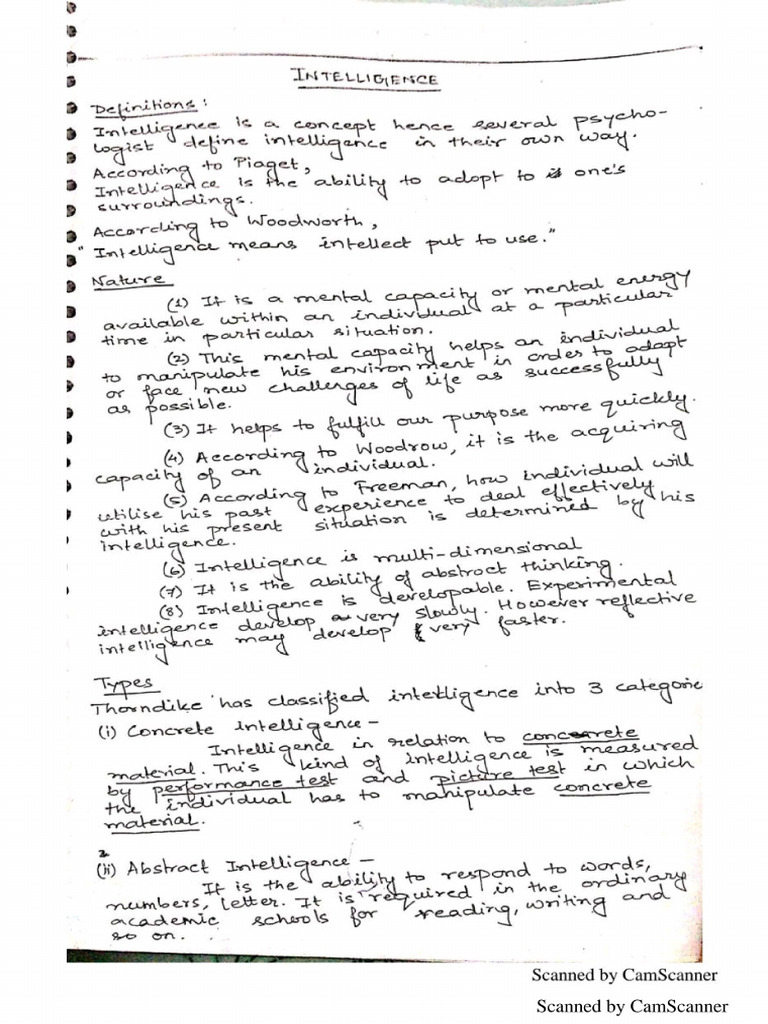 INTELLIGENCE
Definitions:
Intelligence is a concept hence several psycho-
logist define intelligence in their own way.
According to Piaget,
Intelligence is the ability to adopt to one's
surroundings.
According to Woodworth,
"Intelligence means intellect put to use."
Nature
(1) It is a mental capacity or mental energy
available within an individual at a particular
time in particular situation.
(2) This mental capacity helps an individual
to manipulate his environment in order to adapt
or face new challenges of life as successfully
as possible.
(3) It helps to fulfill our purpose more quickly.
(4) According to Woodrow, it is the acquiring
capacity of an individual.
(5) According to Freeman, how individual will
utilise his past experience to deal effectively
with his present situation is determined by his
intelligence.
(6) Intelligence is multi-dimensional
(7) It is the ability of abstract thinking.
(8) Intelligence is developable. Experimental
intelligence develop very slowly. However reflective
intelligence may develop very faster.
Types
Thorndike has classified intelligence into 3 categorie
(i) Concrete intelligence -
Intelligence in relation to concrete
material. This kind of intelligence is measured
by performance test and picture test in which
the individual has to manipulate concrete
material.
2
(ii) Abstract Intelligence -
It is the ability to respond to words,
numbers, letter. It is required in the ordinary
academic schools for reading, writing and
so on.
Scanned by CamScanner
Scanned by CamScanner